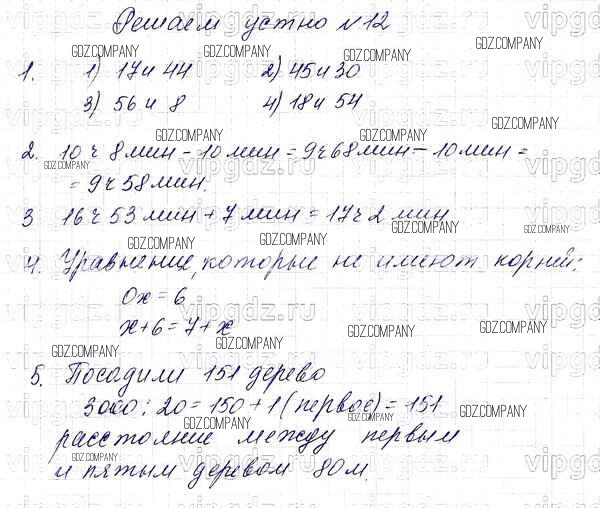 Решаем устно №12
1. 1) 17 и 44 2) 45 и 30
3) 56 и 8 4) 18 и 54
2. 10 ч 8 мин - 10 мин = 9 ч 68 мин - 10 мин =
= 9 ч 58 мин.
3 16 ч 53 мин + 7 мин = 17 ч 2 мин
4. Уравнение, которые не имеют корней:
0x = 6
x + 6 = 7 + x
5. Посадили 151 дерево
3000 : 20 = 150 + 1 (первое) = 151
расстояние между первым
и пятым деревом 80 м.